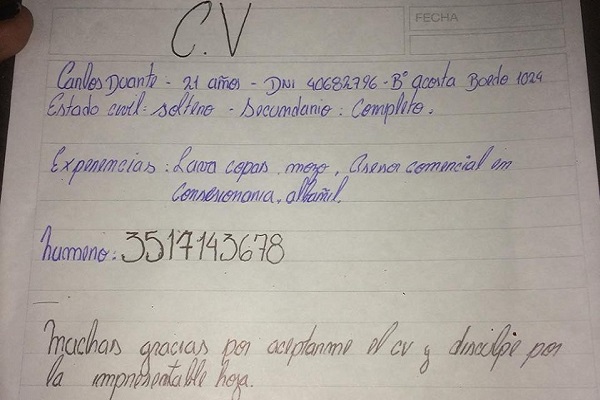 C.V
FECHA
Carlos Duarte - 21 años - DNI 40682796 - B° acosta Boedo 1024
Estado civil: soltero - Secundario: Completo.
Experiencias: Lava copas, mozo, Asesor comercial en
Consesionaria, albañil.
humero: 3517143678
Muchas gracias por aceptarme el cv y disculpe por
la impresentable hoja.